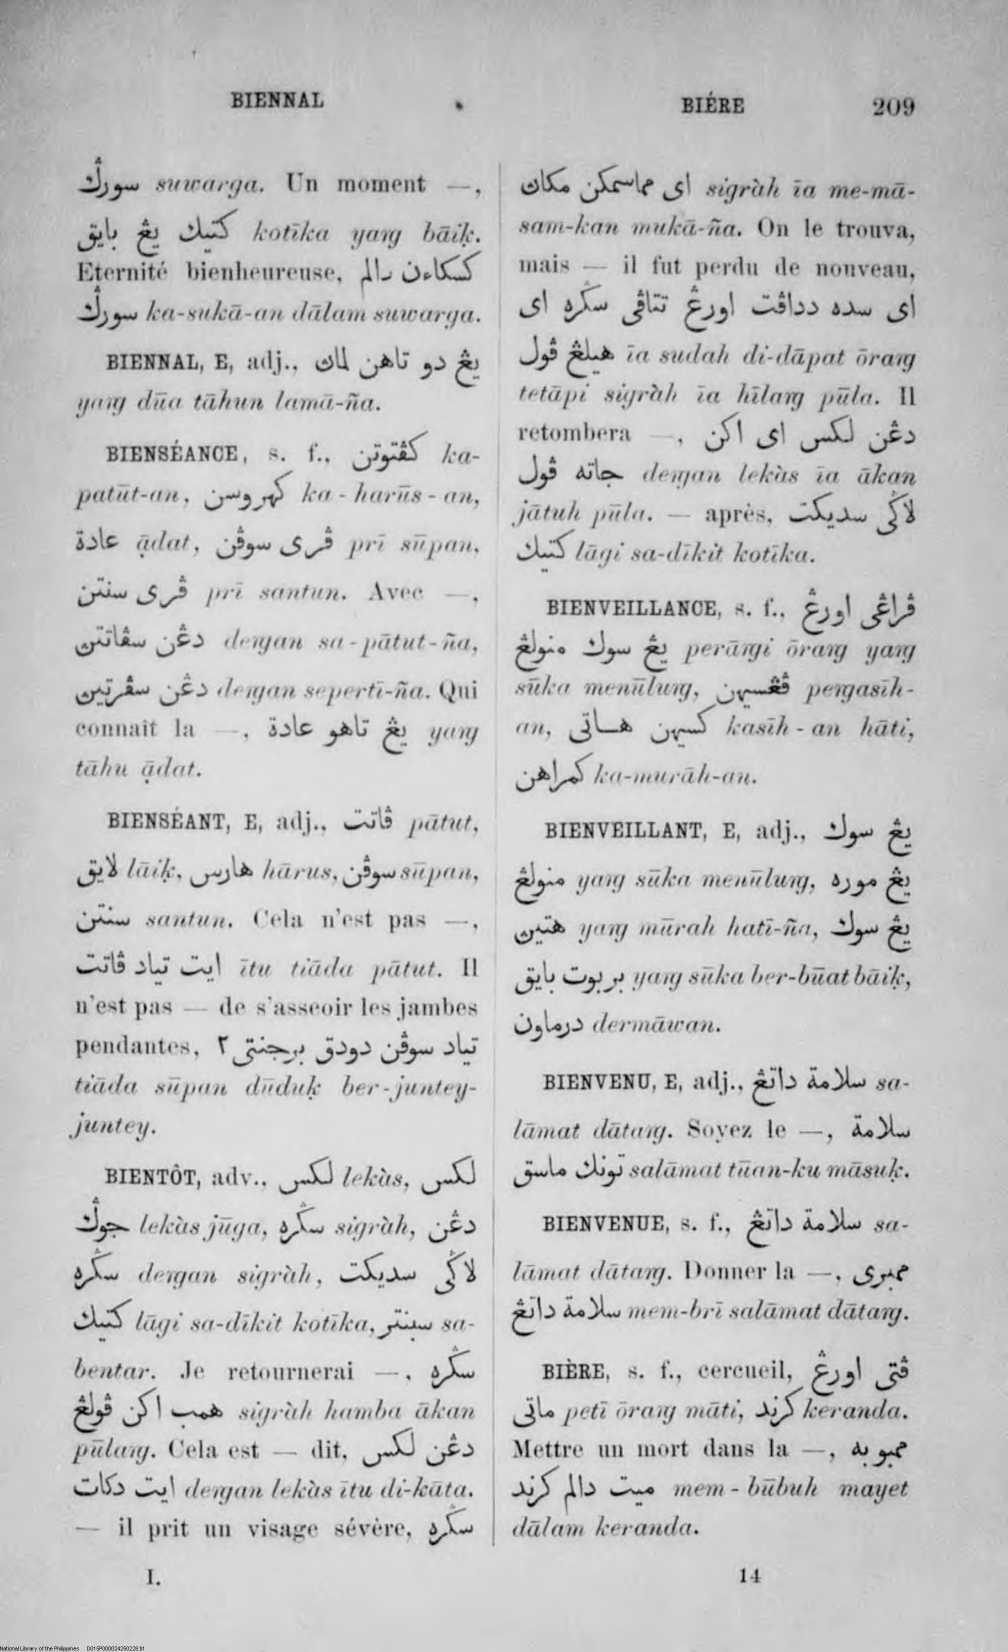 BIENNAL
BIÉRE 209
سورݢ suwarga. Un moment —,
کتيك يڠ بايق kotīka yaṅg bāiḳ.
Eternité bienheureuse, کسکاءن دالم
سورݢ ka-sukā-an dālam suwarga.
BIENNAL, E, adj., يڠ دو تاهن لماڽ
yaṅg dūa tāhun lamā-ña.
BIENSÉANCE, s. f., کڤتوتن ka-
patūt-an, کهروسن ka-harūs-an,
عادة ạ̄dat, ڤری سوڤن prī sūpan,
ڤری سنتن prī santun. Avec —,
دڠن سڤاتتڽ deṅgan sa-pātut-ña,
دڠن سڤرتيڽ deṅgan sepertī-ña. Qui
connaît la —, يڠ تاهو عادة yaṅg
tāhu ạ̄dat.
BIENSÉANT, E, adj., ڤاتت pātut,
لايق lāiḳ, هارس hārus, سوڤن sūpan,
سنتن santun. Cela n'est pas —,
ايت تياد ڤاتت ītu tiāda pātut. Il
n'est pas — de s'asseoir les jambes
pendantes, تياد سوڤن دودق برجنتی٢
tiāda sūpan dūduḳ ber-juntey-
juntey.
BIENTÔT, adv., لکس lekàs, لکس
جوݢ lekàs jūga, سݢره sigràh, دڠن
سݢره deṅgan sigràh, لاݢی سديکت
کتيك lāgi sa-dīkit kotīka, سبنتر sa-
bentar. Je retournerai —, سݢره
همب اکن ڤولڠ sigràh hamba ākan
pūlaṅg. Cela est — dit, دڠن لکس
ايت دکات deṅgan lekàs ītu di-kāta.
— il prit un visage sévère, سݢره
I.
ای مماسمکن مکاڽ sigràh īa me-mā-
sam-kan mukā-ña. On le trouva,
mais — il fut perdu de nouveau,
ای سده دداڤت اورڠ تتاڤی سݢره ای
هيلڠ ڤول īa sudah di-dāpat ōraṅg
tetāpi sigràh īa hīlaṅg pūla. Il
retombera —, دڠن لکس ای اکن
جاته ڤول deṅgan lekàs īa ākan
jātuh pūla. — après, لاݢی سديکت
کتيك lāgi sa-dīkit kotīka.
BIENVEILLANCE, s. f., ڤراڠی اورڠ
يڠ سوك منولڠ perāṅgi ōraṅg yaṅg
sūka menūluṅg, ڤڠسيهن peṅgasīh-
an, کسيهن هاتی kasīh-an hāti,
کمراهن ka-murāh-an.
BIENVEILLANT, E, adj., يڠ سوك
منولڠ yaṅg sūka menūluṅg, يڠ موره
هتيڽ yaṅg mūrah hatī-ña, يڠ سوك
بر بوت بايق yaṅg sūka ber-būat bāiḳ,
درماون dermāwan.
BIENVENU, E, adj., سلامة داتڠ sa-
lāmat dātaṅg. Soyez le —, سلامة
تونك ماسق salāmat tūan-ku māsuḳ.
BIENVENUE, s. f., سلامة داتڠ sa-
lāmat dātaṅg. Donner la —, ممبری
سلامة داتڠ mem-brī salāmat dātaṅg.
BIÈRE, s. f., cercueil, ڤتی اورڠ
ماتی petī ōraṅg māti, کرند keranda.
Mettre un mort dans la —, ممبوبه
ميت دالم کرند mem-būbuh mayet
dālam keranda.
14
National Library of the Philippines